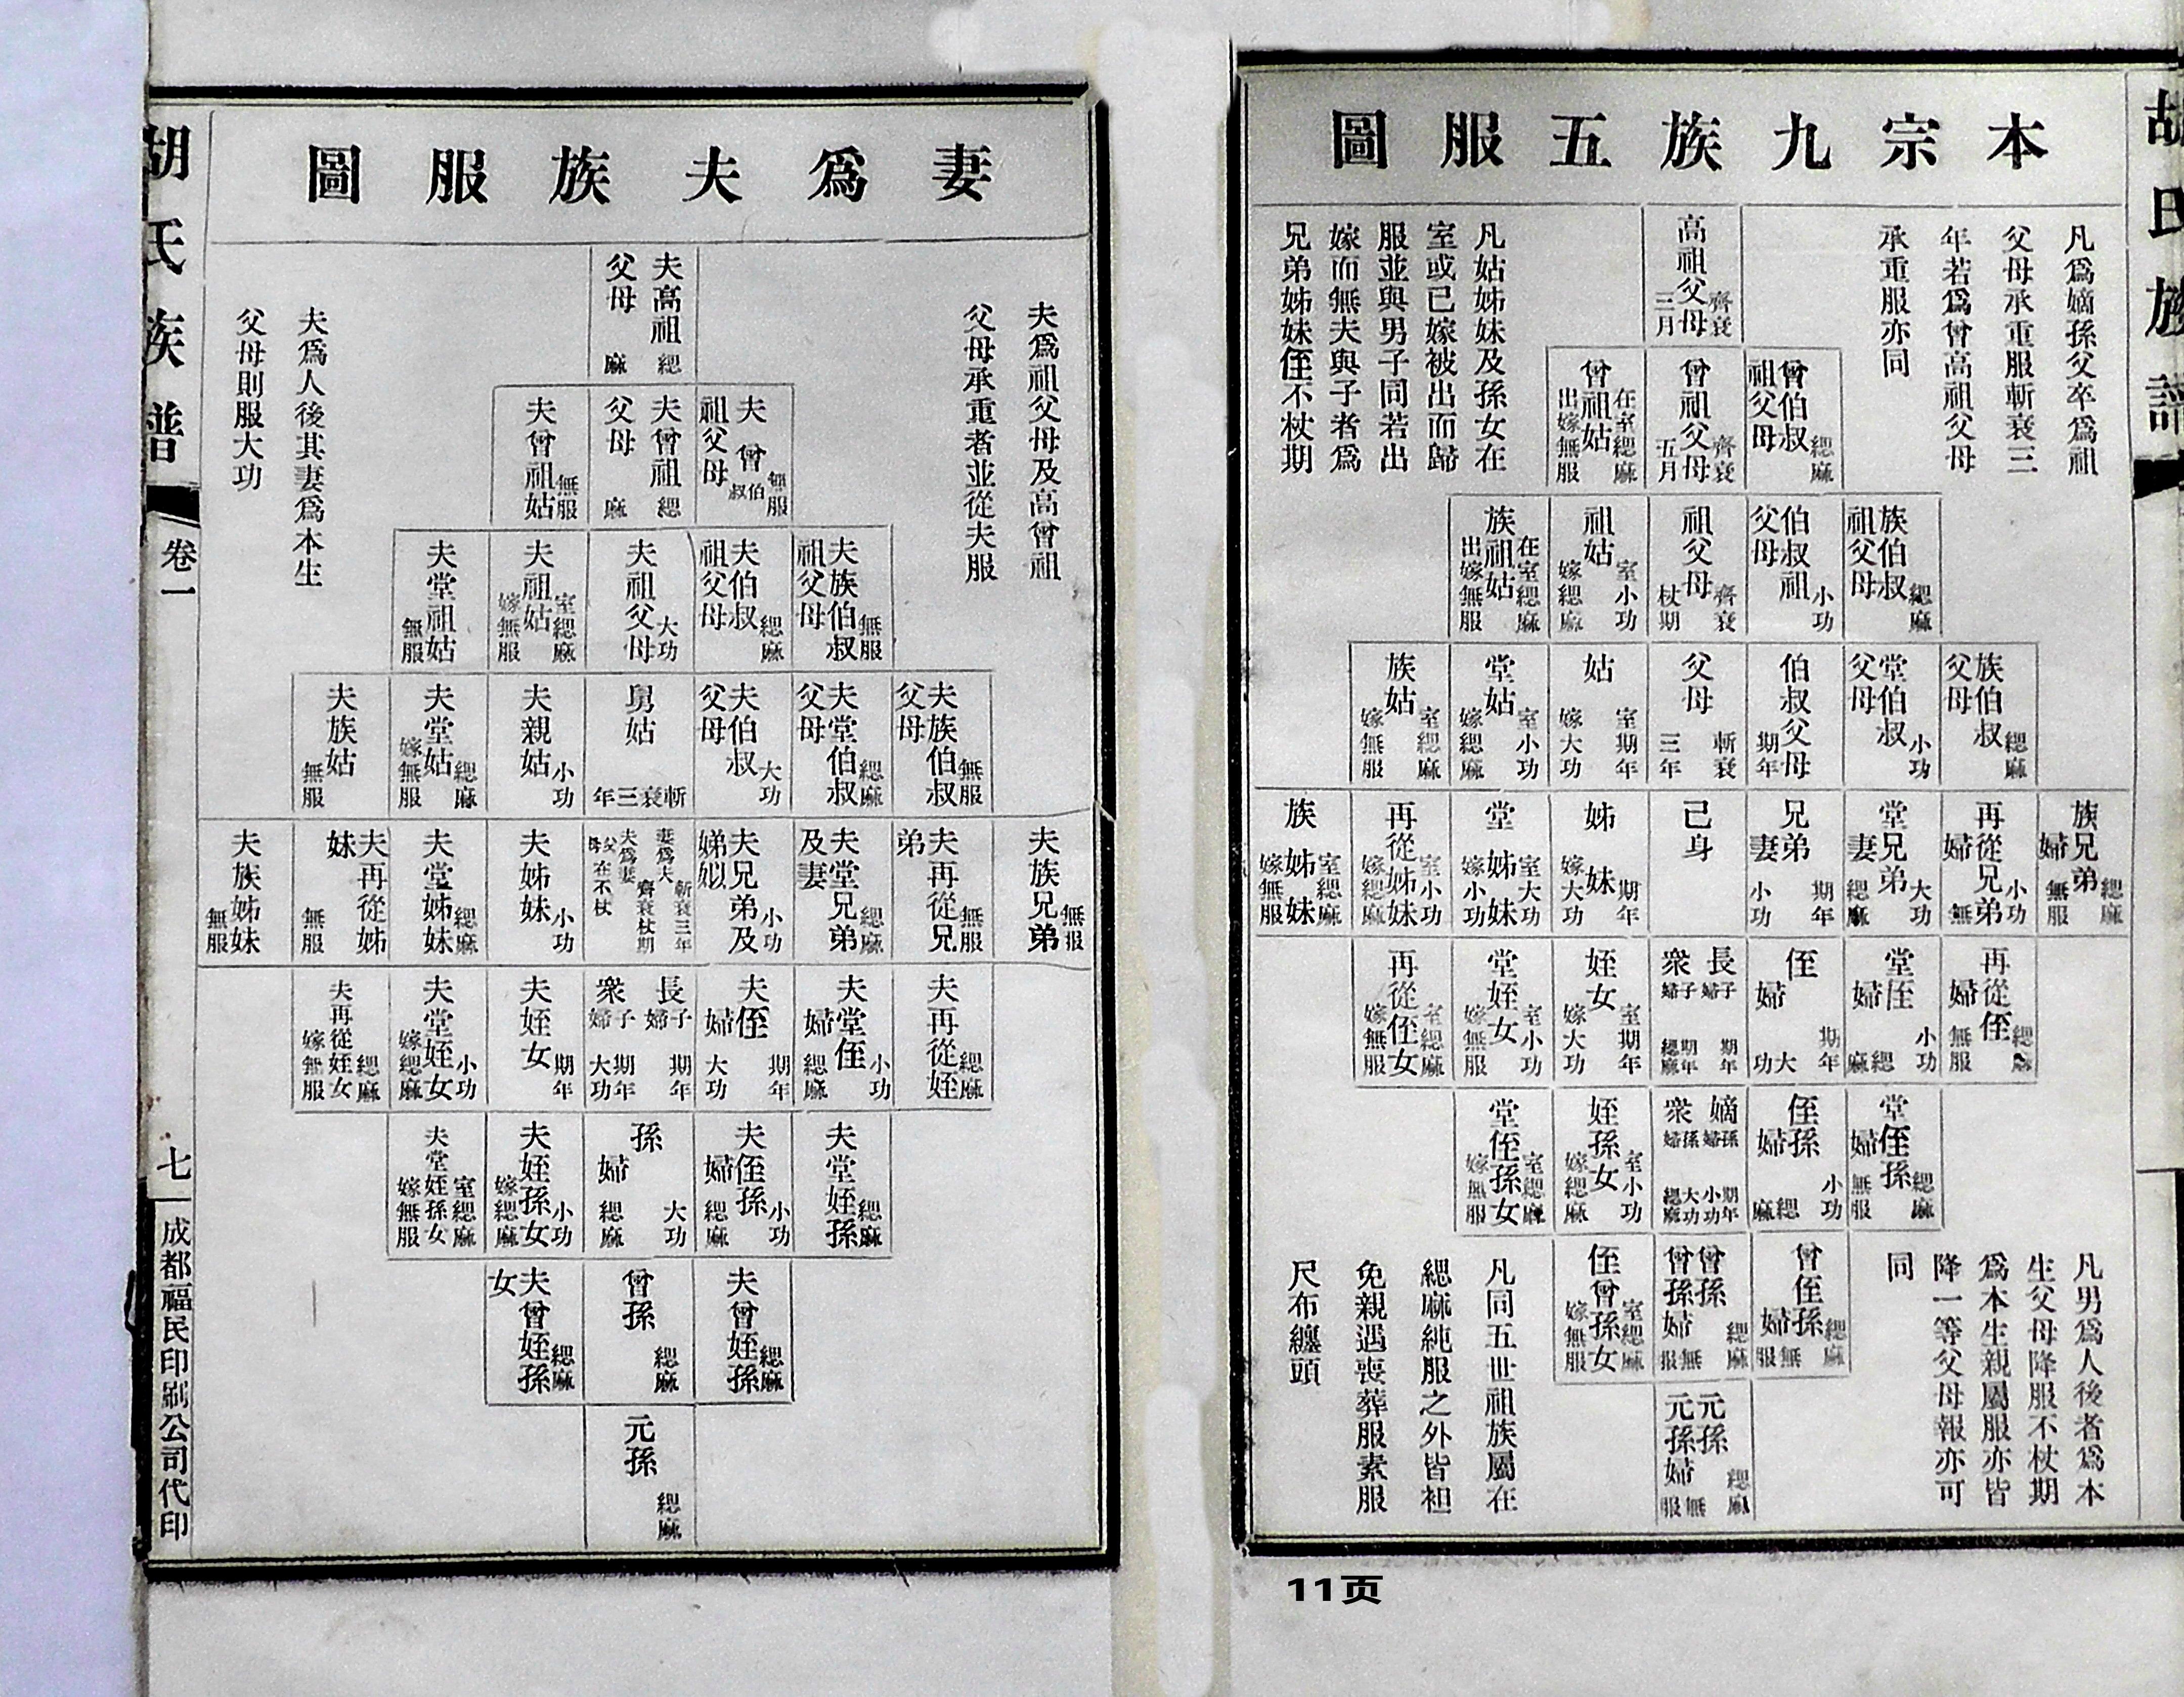 本宗九族五服圖
凡爲嫡孫父卒爲祖
父母承重服斬衰三
年若爲曾高祖父母
承重服亦同
高祖父母 齊衰三月
凡姑姊妹及孫女在
室或已嫁被出而歸
服並與男子同若出
嫁而無夫與子者爲
兄弟姊妹侄不杖期
曾伯叔祖父母 緦麻
曾祖父母 齊衰五月
曾祖姑 在室緦麻 出嫁無服
族伯叔祖父母 緦麻
伯叔祖父母 小功
祖父母 齊衰杖期
祖姑 室小功 嫁緦麻
族祖姑 在室緦麻 出嫁無服
族伯叔父母 緦麻
堂伯叔父母 小功
伯叔父母 期年
父母 斬衰三年
姑 室期年 嫁大功
堂姑 室小功 嫁緦麻
族姑 室緦麻 嫁無服
族兄弟婦 緦麻 無服
再從兄弟婦 小功 無
堂兄弟妻 大功 緦麻
兄弟妻 期年 小功
己身
姊妹 期年 嫁大功
堂姊妹 室大功 嫁小功
再從姊妹 室小功 嫁緦麻
族姊妹 室緦麻 嫁無服
再從侄婦 緦麻 無服
堂侄婦 小功 緦麻
侄婦 期年 大功
長子婦 期年 衆子婦 期年 緦麻
姪女 室期年 嫁大功
堂姪女 室小功 嫁無服
再從侄女 室緦麻 嫁無服
堂侄孫婦 緦麻 無服
侄孫婦 小功 緦麻
嫡孫婦 期年 小功 衆孫婦 大功 緦麻
姪孫女 室小功 嫁緦麻
堂侄孫女 室緦麻 嫁無服
凡男爲人後者爲本
生父母降服不杖期
爲本生親屬服亦皆
降一等父母報亦可
同
曾侄孫婦 緦麻 無服
曾孫 曾孫婦 緦麻 無服
侄曾孫女 室緦麻 嫁無服
元孫 元孫婦 緦麻 無服
凡同五世祖族屬在
緦麻純服之外皆袒
免親遇喪葬服素服
尺布纏頭
胡氏族譜
11页
妻爲夫族服圖
夫爲祖父母及高曾祖
父母承重者並從夫服
夫高祖父母 緦麻
夫曾伯叔祖父母 無服
夫曾祖父母 緦麻
夫曾祖姑 無服
夫爲人後其妻爲本生
父母則服大功
夫族伯叔祖父母 無服
夫伯叔祖父母 緦麻
夫祖父母 大功
夫祖姑 室緦麻 嫁無服
夫堂祖姑 無服
夫族伯叔父母 無服
夫堂伯叔父母 緦麻
夫伯叔父母 大功
舅姑 斬衰三年
夫親姑 小功
夫堂姑 緦麻 嫁無服
夫族姑 無服
夫族兄弟 無服
夫再從兄弟 無服
夫堂兄弟及妻 緦麻
夫兄弟及娣姒 小功
妻爲夫 斬衰三年 夫爲妻 齊衰杖期 父母在不杖
夫姊妹 小功
夫堂姊妹 緦麻
夫再從姊妹 無服
夫族姊妹 無服
夫再從姪 緦麻
夫堂侄婦 小功 緦麻
夫侄婦 期年 大功
長子婦 期年 衆子婦 期年 大功
夫姪女 期年
夫堂姪女 小功 嫁緦麻
夫再從姪女 緦麻 嫁無服
夫堂姪孫 緦麻
夫侄孫婦 小功 緦麻
孫婦 大功 緦麻
夫姪孫女 小功 嫁緦麻
夫堂姪孫女 室緦麻 嫁無服
夫曾姪孫 緦麻
曾孫 緦麻
夫曾姪孫女 緦麻
元孫 緦麻
胡氏族譜
卷一
七
成都福民印刷公司代印